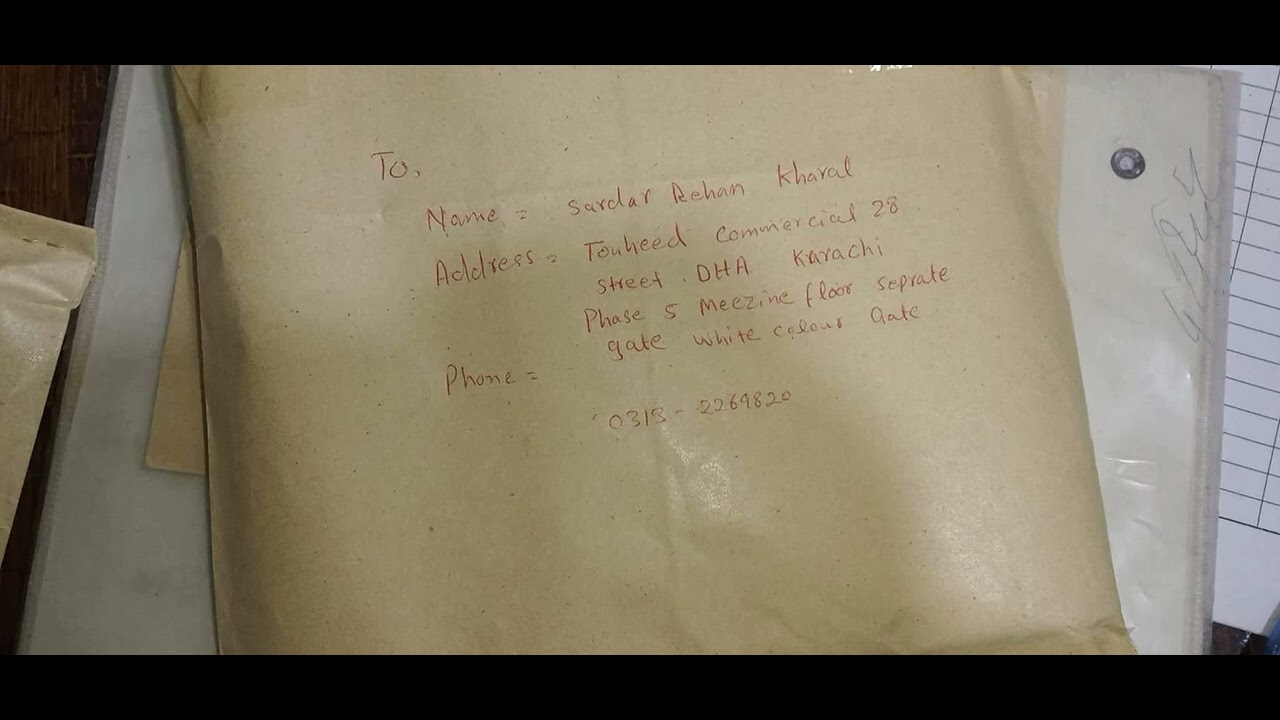 To,
Name = Sardar Rehan Kharal
Address = Touheed Commercial 28
street . DHA Karachi
Phase 5 Meezine floor seprate
gate white colour Gate
Phone =
0313 - 2269820